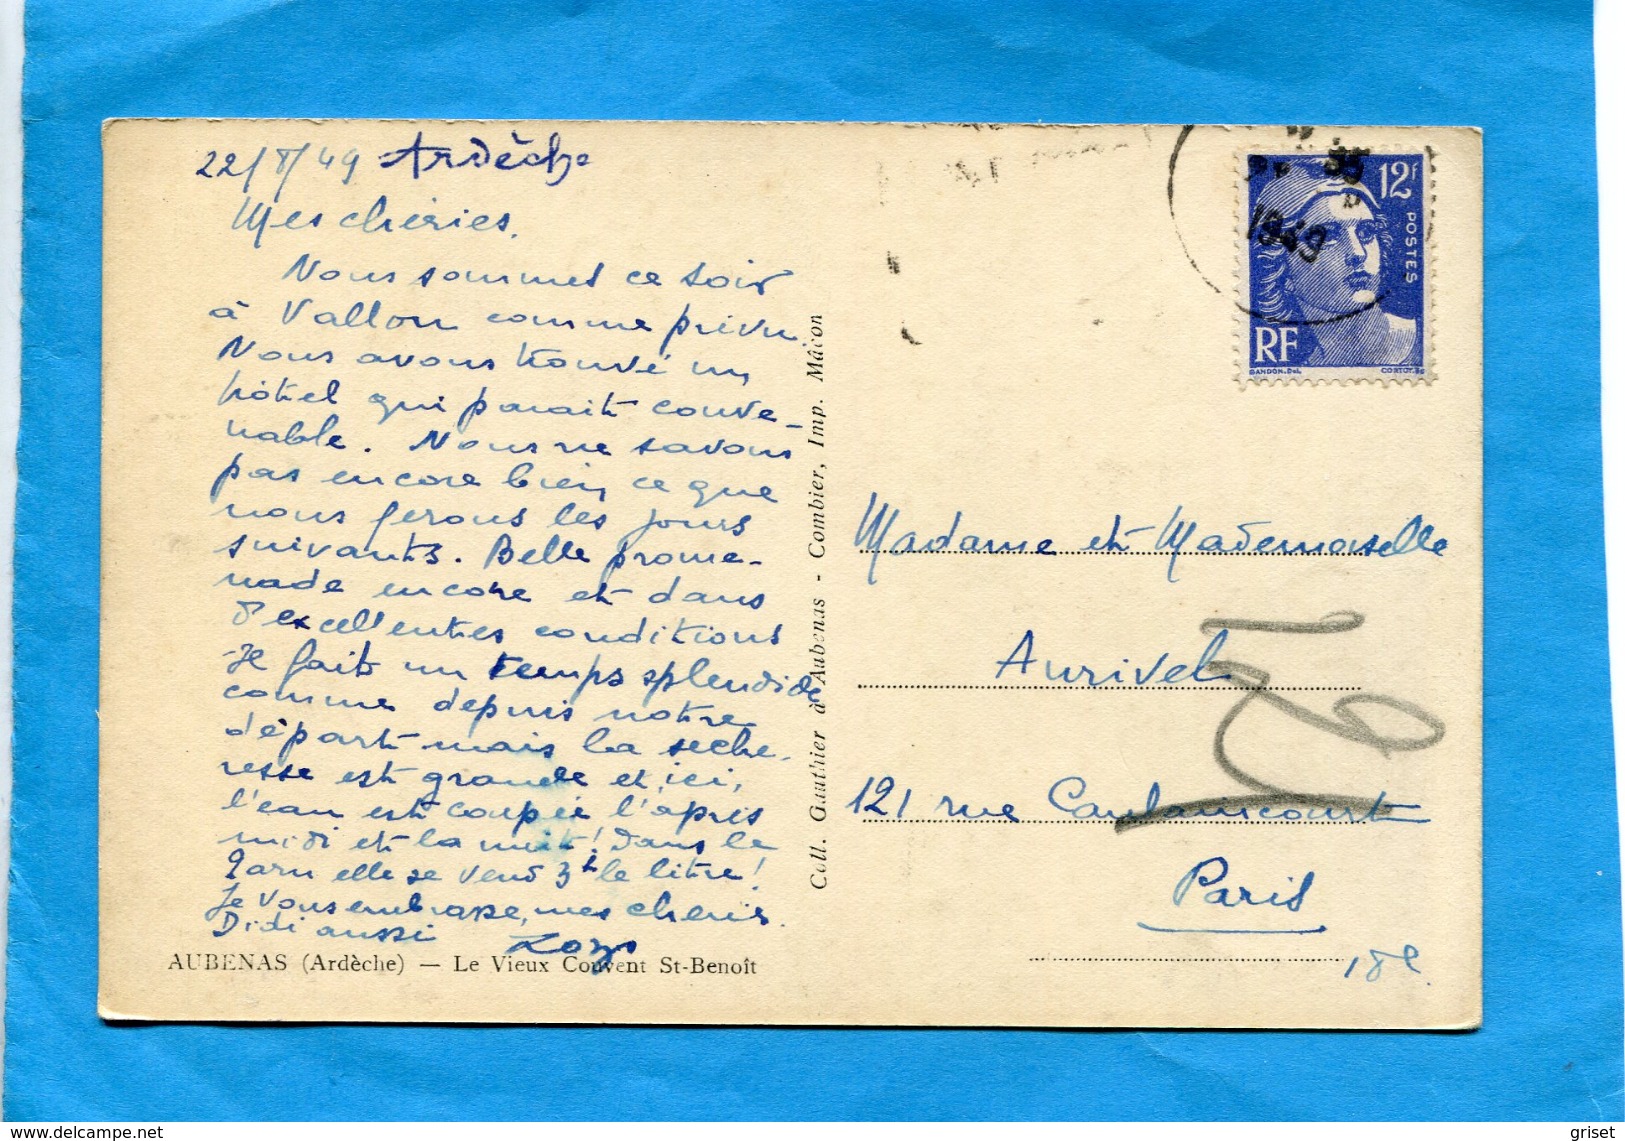 22/8/49 Ardèche
Mes chéries.
Nous sommes ce soir
à Vallon comme prévu.
Nous avons trouvé un
hôtel qui parait conve-
nable. Nous ne savons
pas encore bien ce que
nous ferons les jours
suivants. Belle prome-
nade encore et dans
d'excellentes conditions
Il fait un temps splendide
comme depuis notre
départ mais la séche-
resse est grande et, ici,
l'eau est coupée l'après
midi et la nuit! Dans le
Tarn elle se vend 3f le litre!
Je vous embrasse, mes chéries.
Didi aussi
AUBENAS (Ardèche) — Le Vieux Couvent St-Benoît
Coll. Gauthier à Aubenas - Combier, Imp. Mâcon
1949
12F
POSTES
RF
GANDON.Del.
CORTOT.Sc
Madame et Mademoiselle
Aurivel
121 rue Caulaincourt
Paris
18e
griset